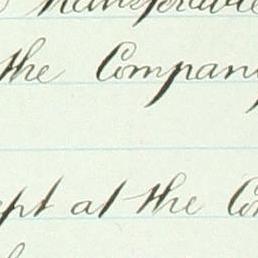 transferable
the Company
ept at the Co